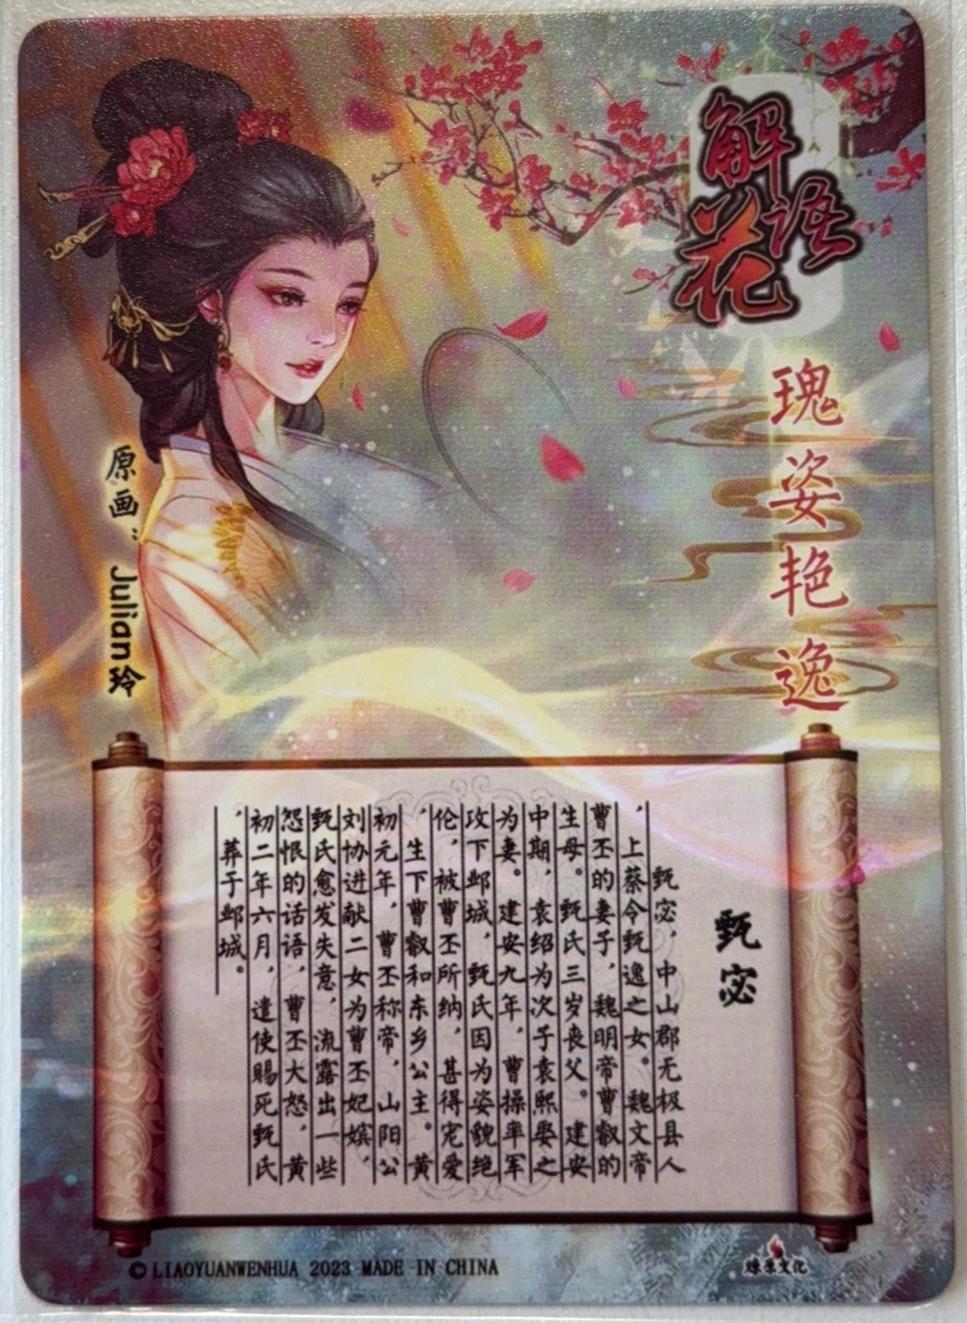 解语花
瑰姿艳逸
原画：Julian玲
甄宓
甄宓，中山郡无极县人
，上蔡令甄逸之女。魏文帝
曹丕的妻子，魏明帝曹叡的
生母。甄氏三岁丧父。建安
中期，袁绍为次子袁熙娶之
为妻。建安九年，曹操率军
攻下邺城，甄氏因为姿貌绝
伦，被曹丕所纳，甚得宠爱
，生下曹叡和东乡公主。黄
初元年，曹丕称帝，山阳公
刘协进献二女为曹丕妃嫔，
甄氏愈发失意，流露出一些
怨恨的话语，曹丕大怒，黄
初二年六月，遣使赐死甄氏
，葬于邺城。
© LIAOYUANWENHUA 2023 MADE IN CHINA
燎原文化